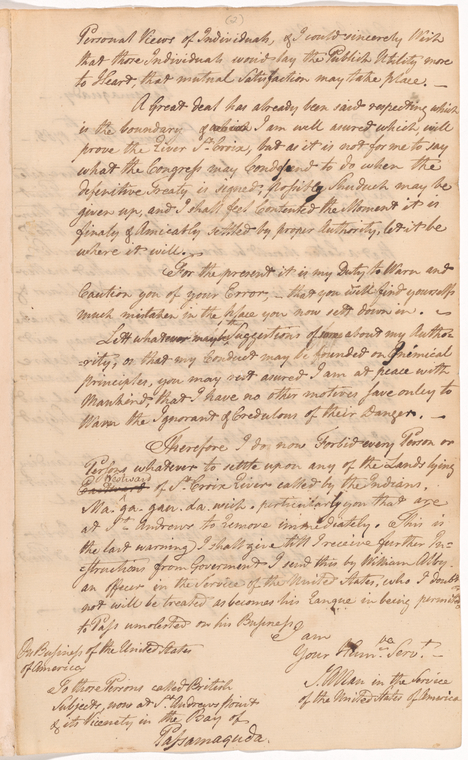 (2)
Personal Views of Individuals, & I could sincerely Wish
that those Individuals would lay the Publick Utility more
to Heart, that mutual Satisfaction may take place. —
A Great deal has already been said respecting which
is the boundary, & which I am well asured which, will
prove the River St. Croix, but as it is not for me to say
what the Congress may Condesend to do when the
definitive Treaty is signed, Possibly Shuduck may be
given up, and I shall feel Contented the Moment it is
finaly & Amicably settled by proper Authority, let it be
where it will. —
For the present it is my Duty to Warn and
Caution you of your Error, — that you will find yourselfs
much mistaken in the place you now sett down in. —
Lett whatever may be the Suggestions of some about my Autho-
-rity, or that my Conduct may be founded on Inemical
principles, you may rest asured I am at peace with
Mankind, that I have no other motives save only to
Warn the Ignorant & Credulous of their Danger. —
Therefore I do now Forbid every Person or
Persons whatever to settle upon any of the Lands lying
Westward
Eastward of St. Croix River called by the Indians.
Ma. ga. gau. da. wich. perticularly you that are
at St. Andrews to remove immediately. (This is
the last warning) I shall give till I receive further In-
-structions from Goverment. I send this by William Albey
an officer in the Service of the United States, who I doubt
not will be treated as becomes his Ranque in being permitted
to Pass unmolested on his Business,
I am
Your Hum. Serv.t —
J. Allan in the Service
of the United States of America
On Business of the United States
of America
To those Persons called British
Subjects, now at St. Andrews point
& its Vicenity in the Bay of
Passamaquda.